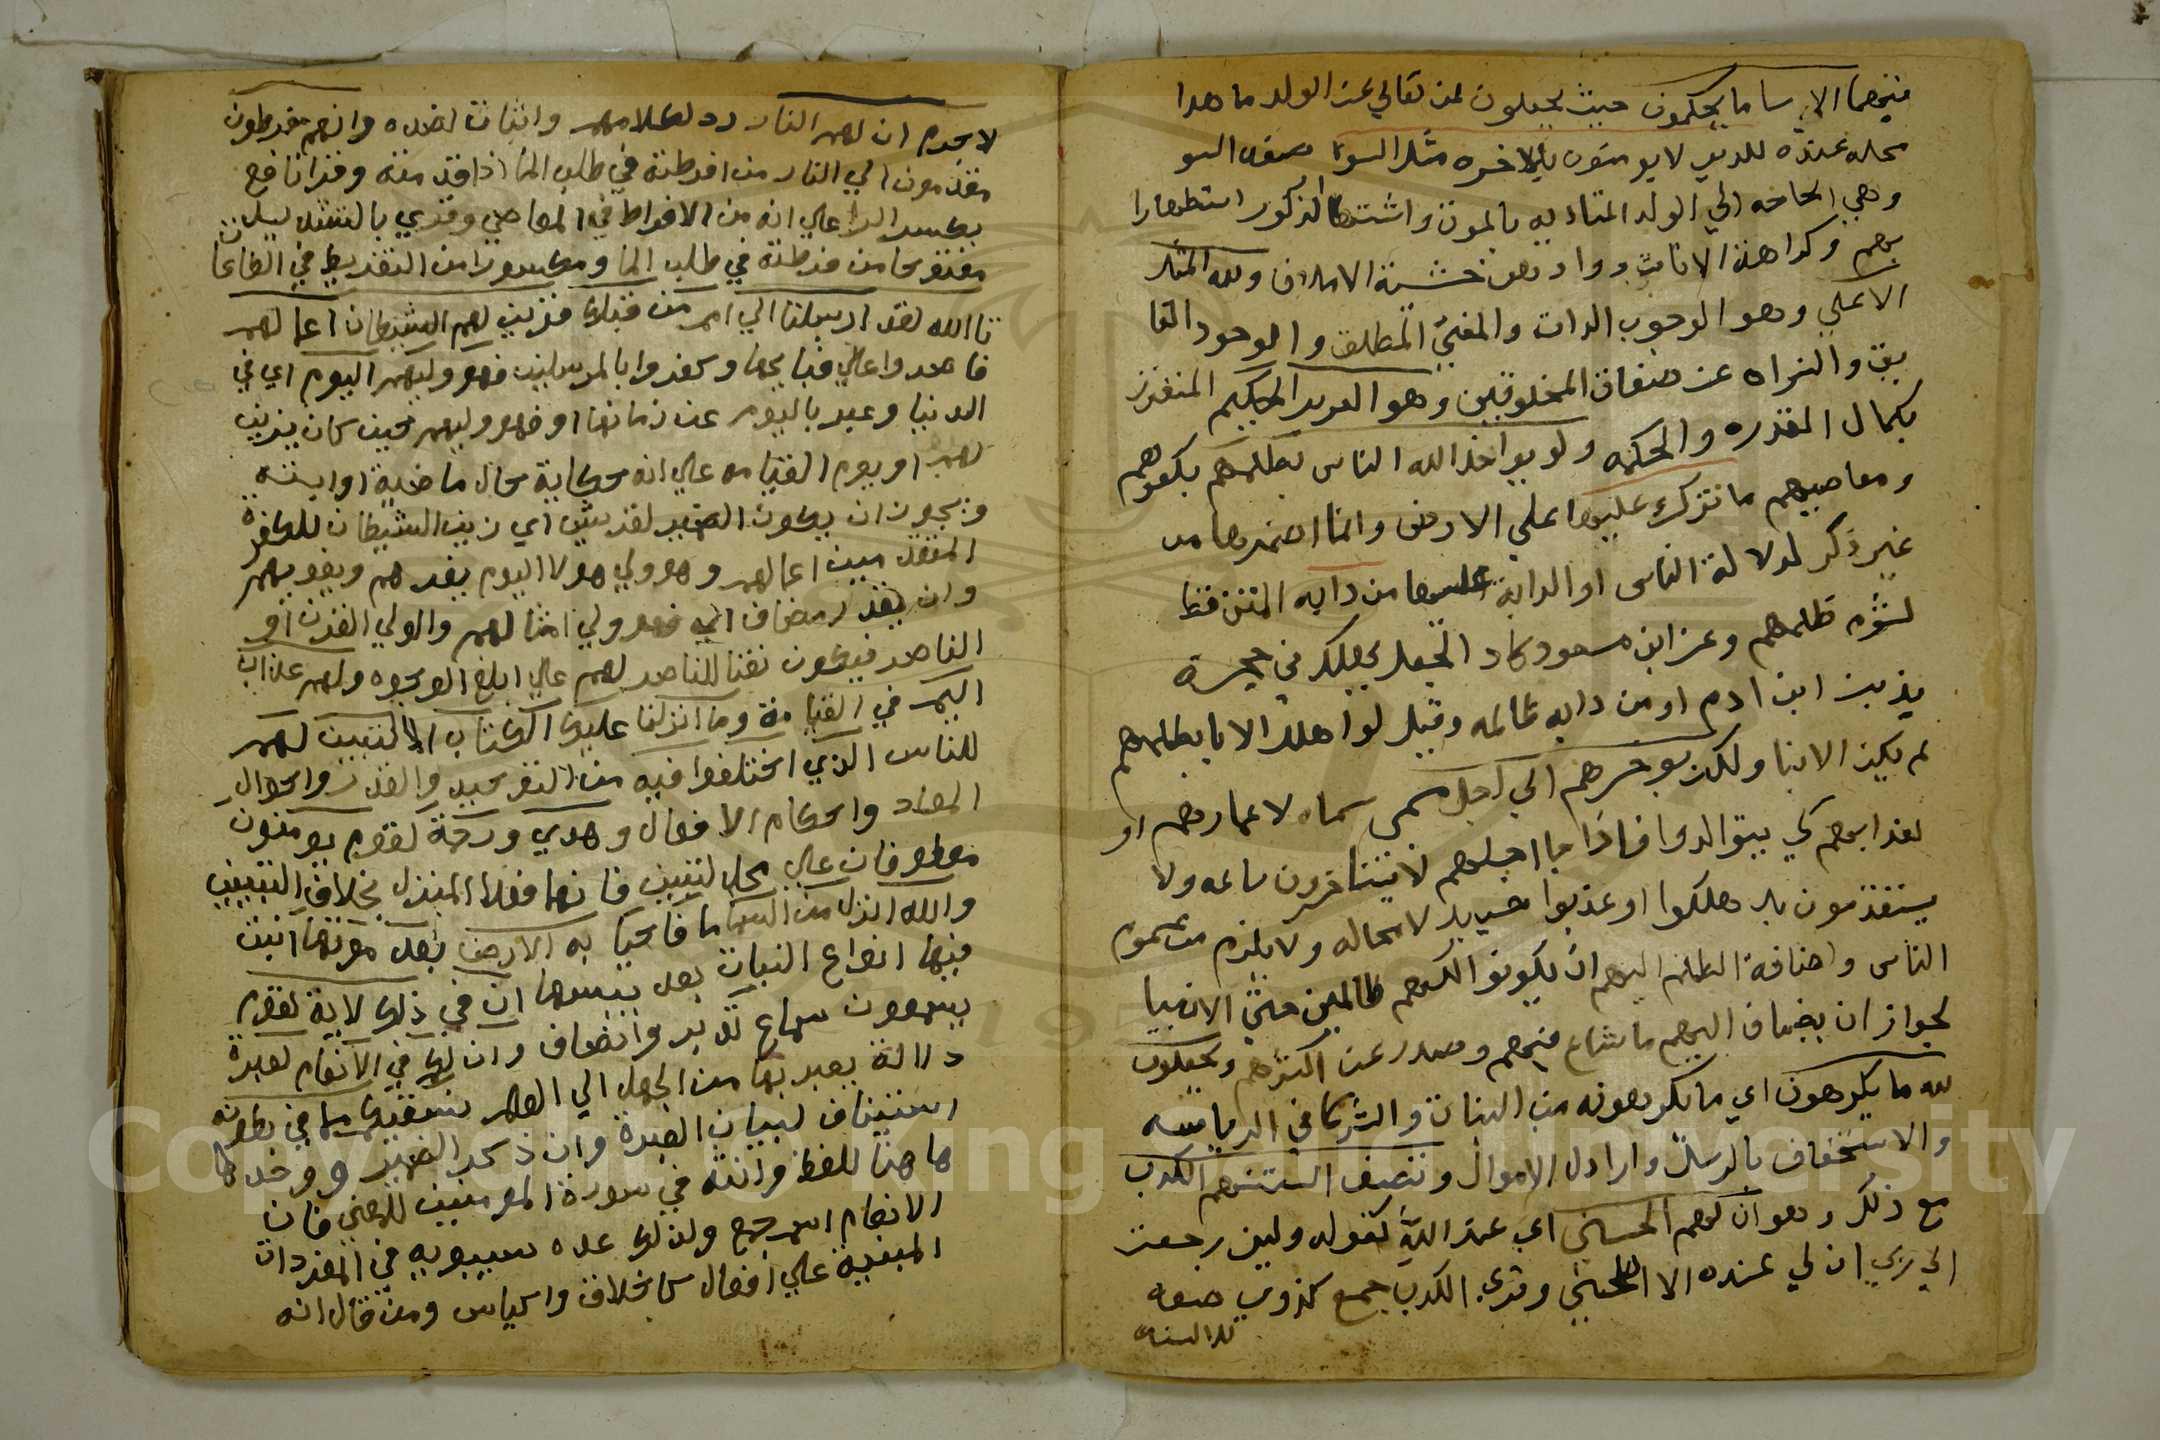 فيهما الا سا ما يحكمون حيث يجعلون لمن تعالي عن الولد ما هدا
محله عندهم للدين لا يومنون بالاخره مثل السوء صفه السو
وهي الحاجه الي الولد المناديه بالموت واشتها الذكور استظهارا
بهم وكراهة الاناث ووادهن خشية الاملاق ولله المثل
الاعلي وهو الوجوب الذات والغني المطلق والجود الفا
يق والنزاه عن صفات المخلوقين وهو العزيز الحكيم المنفرد
بكمال القدره والحكمه ولو يواخذ الله الناس بظلمهم بكفرهم
ومعاصيهم ما ترك عليها علي الارض وانما اضمرها من
غير ذكر لدلالة الناس او الدابة عليها من دابه المتن قط
لشوم ظلمهم وعن ابن مسعود كاد الجعل يهلك في حجره
بذنب ابن ادم او من دابه ظالمه وقيل لو اهلك الابا بظلمهم
لم يكن الابنا ولكن يوخرهم الي اجل مسمي سماه لاعمارهم او
لعذابهم كي يتوالدوا فاذا جا اجلهم لا يستاخرون ساعه ولا
يستقدمون بل هلكوا او عذبوا حينيذ لا محاله ولا يلزم من عموم
الناس واضافة الظلم اليهم ان يكونوا كلهم ظالمين حتي الانبيا
لجواز ان يضاف اليهم ما شاع فيهم وصدر عن اكثرهم ويجعلون
لله ما يكرهون اي ما يكرهونه من البنات والشركا في الرياسه
والاستخفاف بالرسل واراذل الاموال وتصف السنتهم الكذب
مع ذلك وهو ان لهم الحسني اي عند الله كقوله ولين رجعت
الي ربي ان لي عنده الا للحسني وقري الكذب جمع كذوب صفه
للالسنه
لا جرم ان لهم النار رد لكلامهم واثبات لضده وانهم مفرطون
مقدمون الي النار من افرطته في طلب الما اذا قدمته وقرا نافع
بكسر الرا علي انه من الافراط في المعاصي وقري بالتشديد
مفتوحا من فرطته في طلب الما ومكسورا من التفريط في الطاعا
ت
تاالله لقد ارسلنا الي امم من قبلك فزين لهم الشيطان اعمالهم
فاصروا علي قبايحها وكفروا بالمرسلين فهو وليهم اليوم اي في
الدنيا وعبر باليوم عن زمانها او فهو وليهم حين كان يزين
لهم او يوم القيامه علي انه حكاية حال ماضية او اتية
ويجوز ان يكون الضمير لقريش اي زين الشيطان للكفرة
المتقدمين اعمالهم وهو ولي هولا اليوم يغرهم ويغويهم
وان يقدر مضاف اي فهو ولي امثالهم والولي القرين او
الناصر فيكون نفيا للناصر لهم علي ابلغ الوجوه ولهم عذاب
اليم في القيامة وما انزلنا عليك الكتاب الا لتبين لهم
للناس الذي اختلفوا فيه من التوحيد والقدر واحوال
المعاد واحكام الافعال وهدي ورحمة لقوم يومنون
معطوفان علي محل لتبين فانهما فعلا المنزل بخلاف التبيين
والله انزل من السما ما فاحيا به الارض بعد موتها انبت
فيها انواع النبات بعد يبسها ان في ذلك لاية لقوم
يسمعون سماع تدبر وانصاف وان لكم في الانعام لعبرة
دلالة يعبر بها من الجهل الي العلم نسقيكم مما في بطونه
استيناف لبيان العبرة وان ذكر الضمير ووحده
ها هنا للفظ وانثه في سورة المومنين للمعني فان
الانعام اسم جمع ولذلك عده سيبويه في المفردات
المبنية علي افعال كاخلاق واكياس ومن قال انه